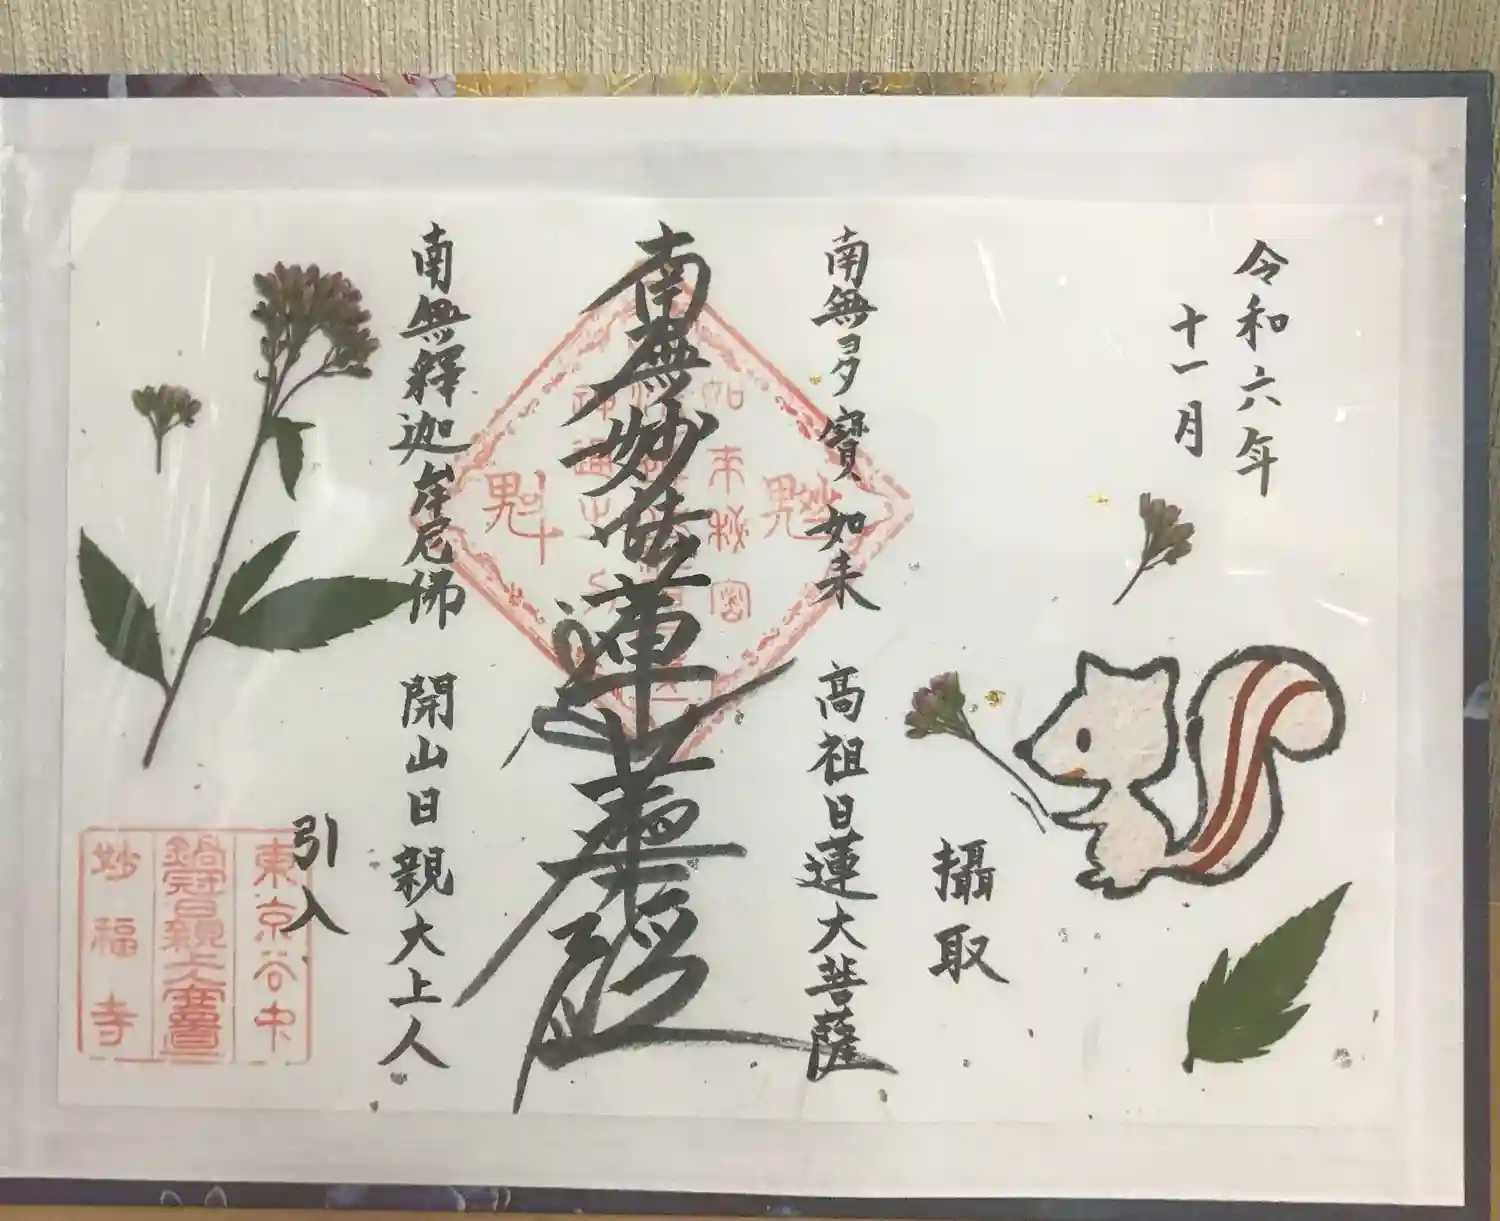 令和六年
十一月
攝取
南無多寶如来
高祖日蓮大菩薩
南無妙法蓮華經
南無釋迦牟尼佛
開山日親大上人
引入
東京谷中
鍋冠日親上人安置
妙福寺